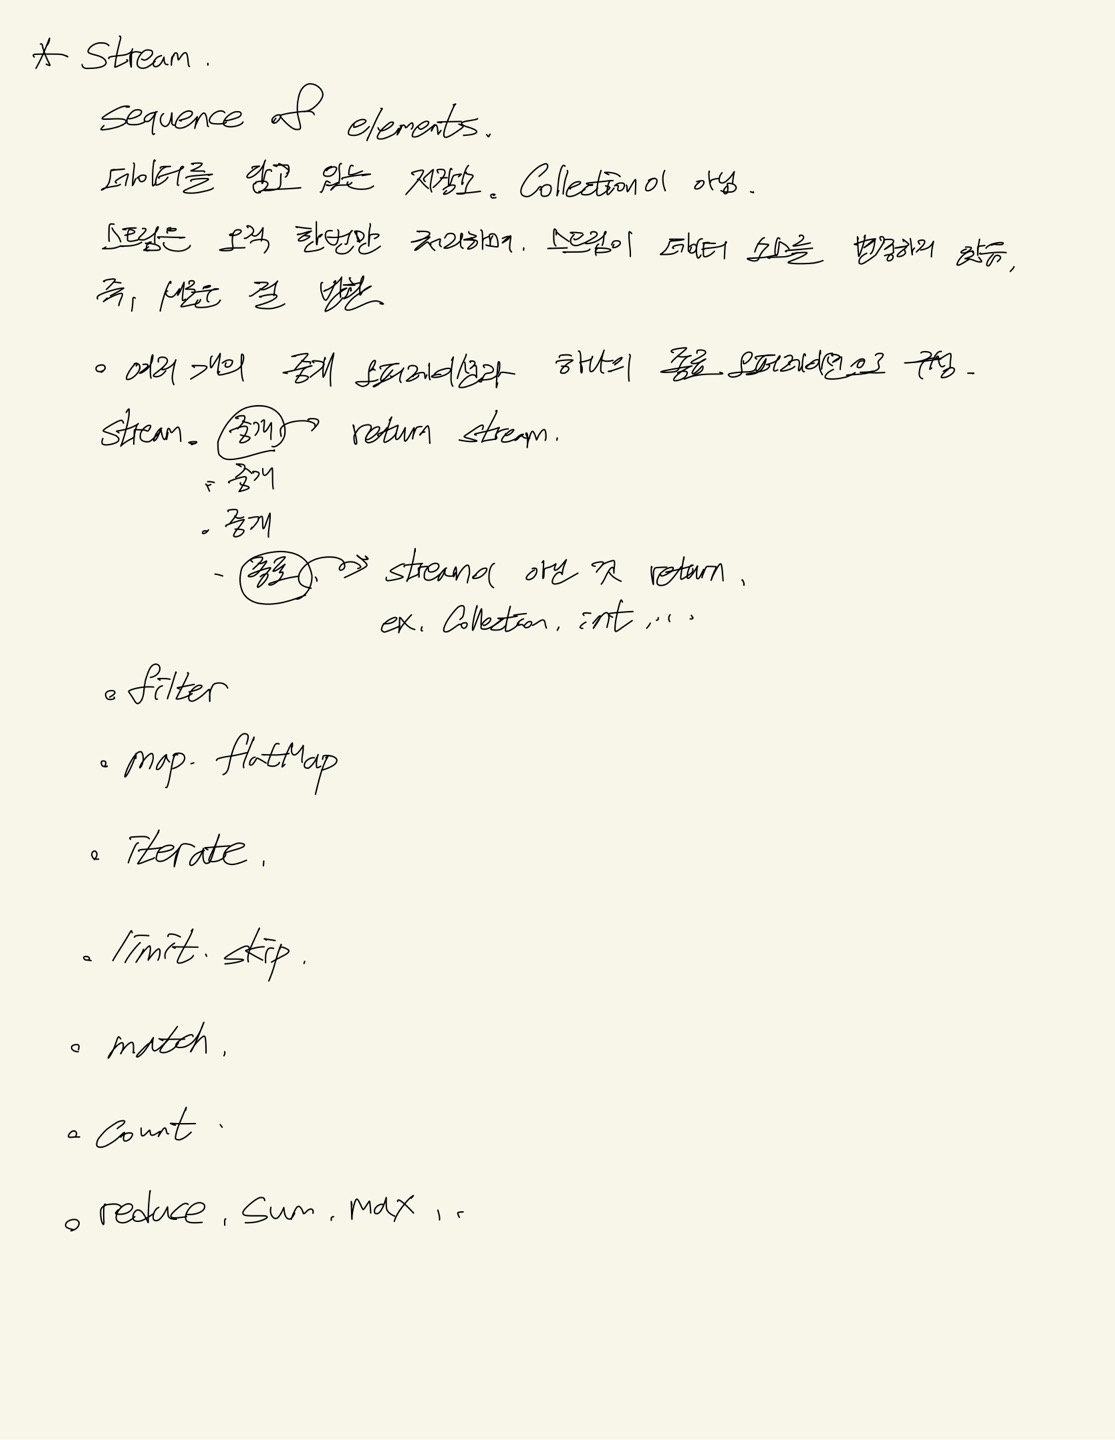 * Stream.
sequence of elements.
데이터를 담고 있는 저장소. Collection이 아님.
스트림은 오직 한번만 처리하며. 스트림이 데이터 소스를 변경하지 않음,
즉, 새로운 걸 반환
◦ 여러 개의 중계 오퍼레이션과 하나의 종료 오퍼레이션으로 구성.
stream. 중개 → return stream.
. 중개
. 중개
- 종료. → stream이 아닌 것 return.
ex. Collection, int ...
◦ filter
◦ map. flatMap
◦ iterate.
◦ limit. skip.
◦ match.
◦ Count.
◦ reduce, sum, max, ..